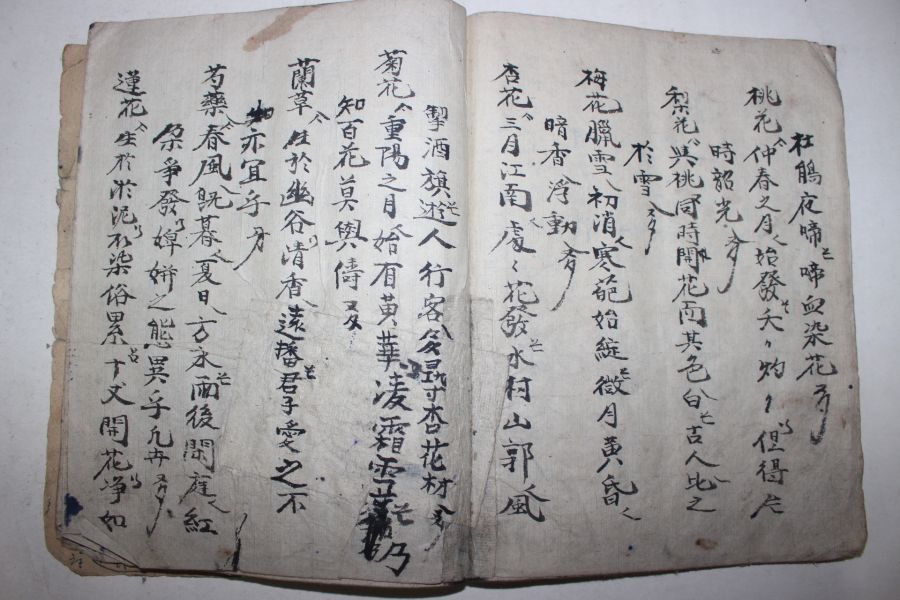 杜鵑夜啼啼血染花
桃花仲春之月始發夭々灼々但得片
時韶光
梨花與桃同時開花而其色白古人比之
於雪
梅花臘雪初消寒葩始綻微月黃昏
暗香浮動
杏花三月江南處々花發水村山郭風
擊酒旗遊人行客多尋杏花材
菊花重陽之月始有黃華凌霜雪乃
知百花莫與儔
蘭草生於幽谷清香遠播君子愛之不
亦宜乎
芍藥春風旣暮夏日方永雨後閑庭紅
朶爭發婥姸之態異乎凡卉
蓮花生於淤泥不染俗累十丈開花淨如